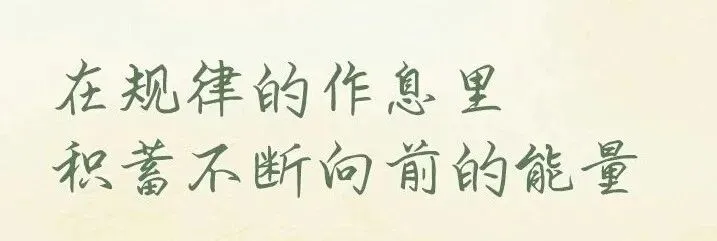 在规律的作息里
积蓄不断向前的能量